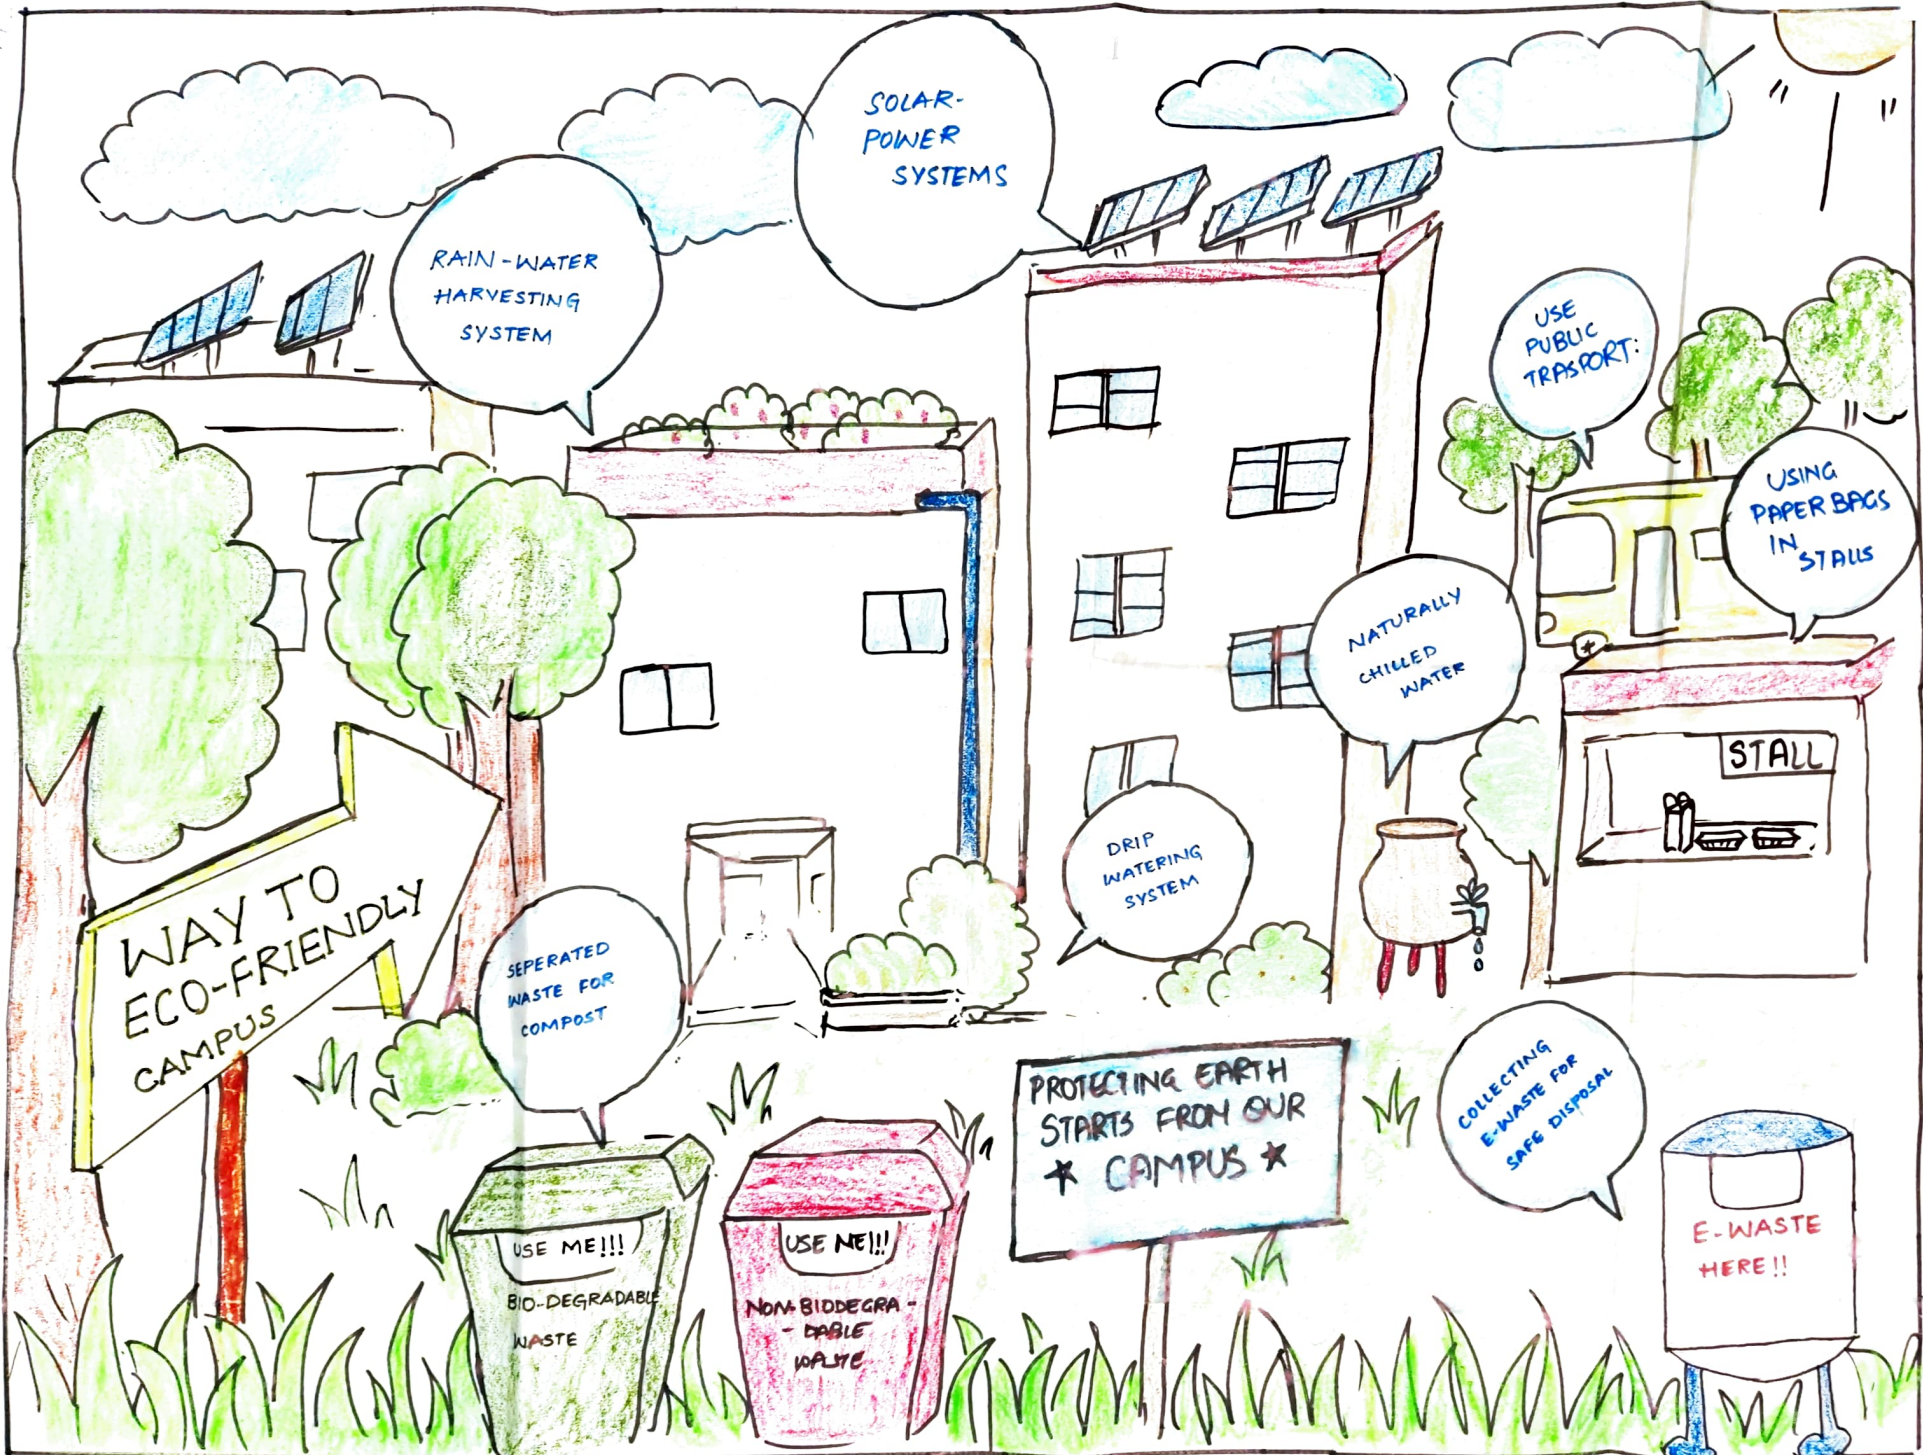 SOLAR-
POWER
SYSTEMS
RAIN-WATER
HARVESTING
SYSTEM
USE
PUBLIC
TRASPORT:
USING
PAPER BAGS
IN
STALLS
NATURALLY
CHILLED
WATER
STALL
DRIP
WATERING
SYSTEM
WAY TO
ECO-FRIENDLY
CAMPUS
SEPERATED
WASTE FOR
COMPOST
PROTECTING EARTH
STARTS FROM OUR
★ CAMPUS ★
COLLECTING
E-WASTE FOR
SAFE DISPOSAL
USE ME!!!
BIO-DEGRADABLE
WASTE
USE ME!!!
NON-BIODEGRA-
-DABLE
WASTE
E-WASTE
HERE!!